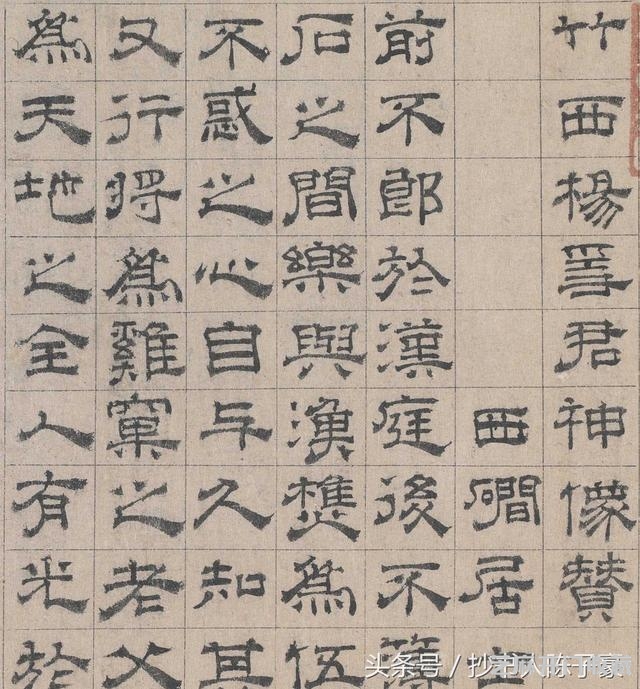 竹西楊君神像贊
西磵居
前不郎於漢庭後不
石之間樂與漁樵爲伍
不惑之心自与久知其
又行將爲雞窠之老父
爲天地之全人有光於
头条号 / 抄书人陈子豪